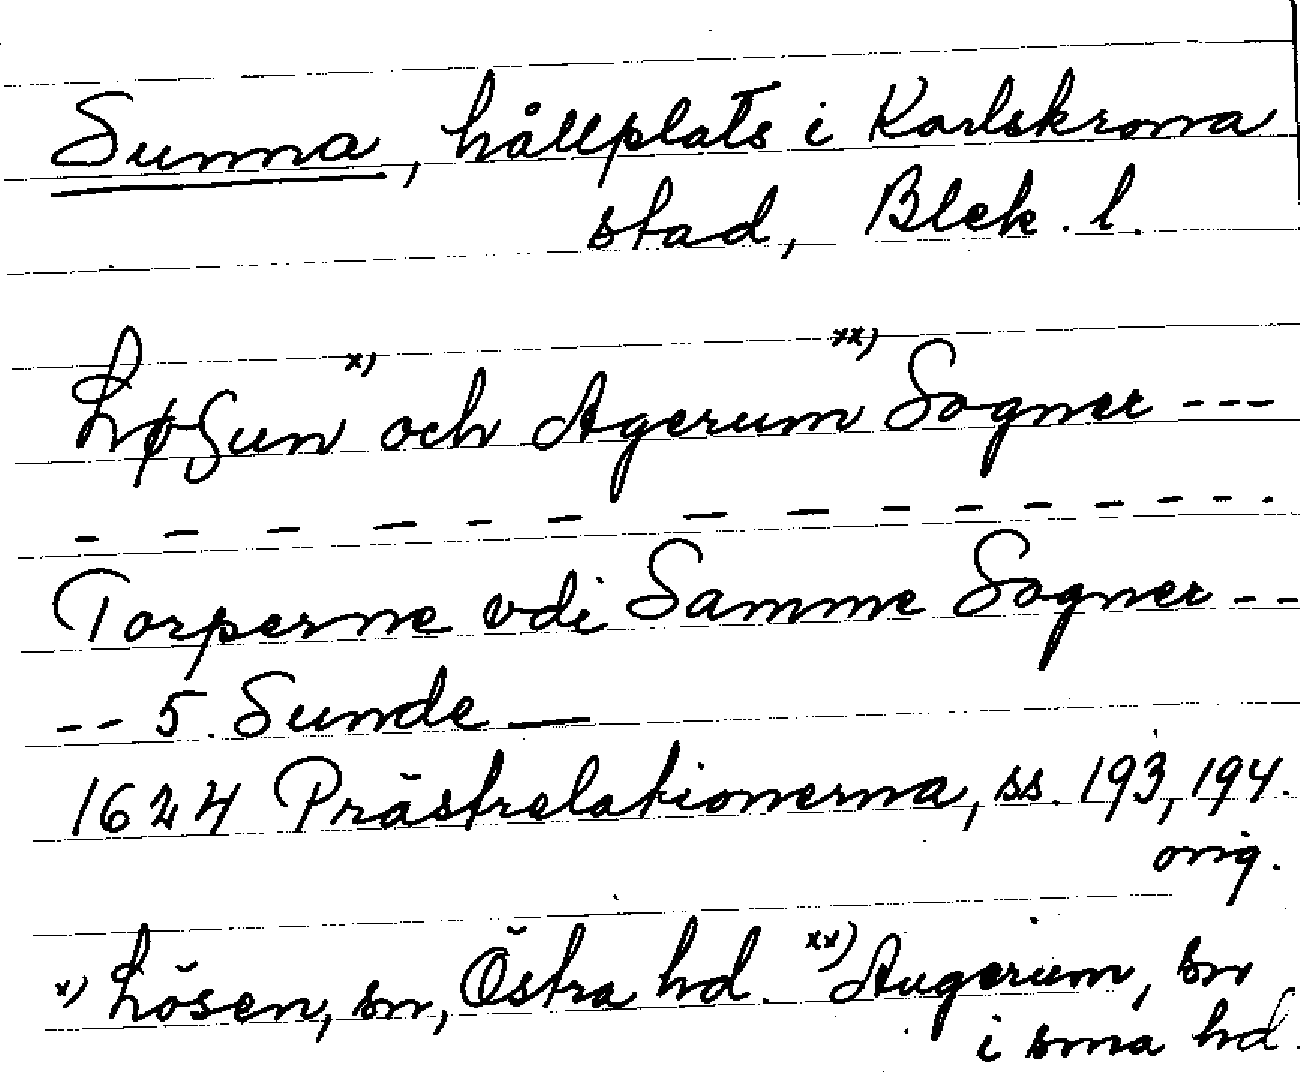 Sunna, hållplats i Karlskrona
stad, Blek. l.
LøSun x) och Agerum xx) Sogner ---
- - - - - - - - - - - - - -
Torperne vdi Samme Sogner --
-- 5. Sunde —
1624 Prästrelationerna, ss. 193, 194.
orig.
x) Lösen, sn, Östra hd. xx) Augerum, sn
i sma hd.